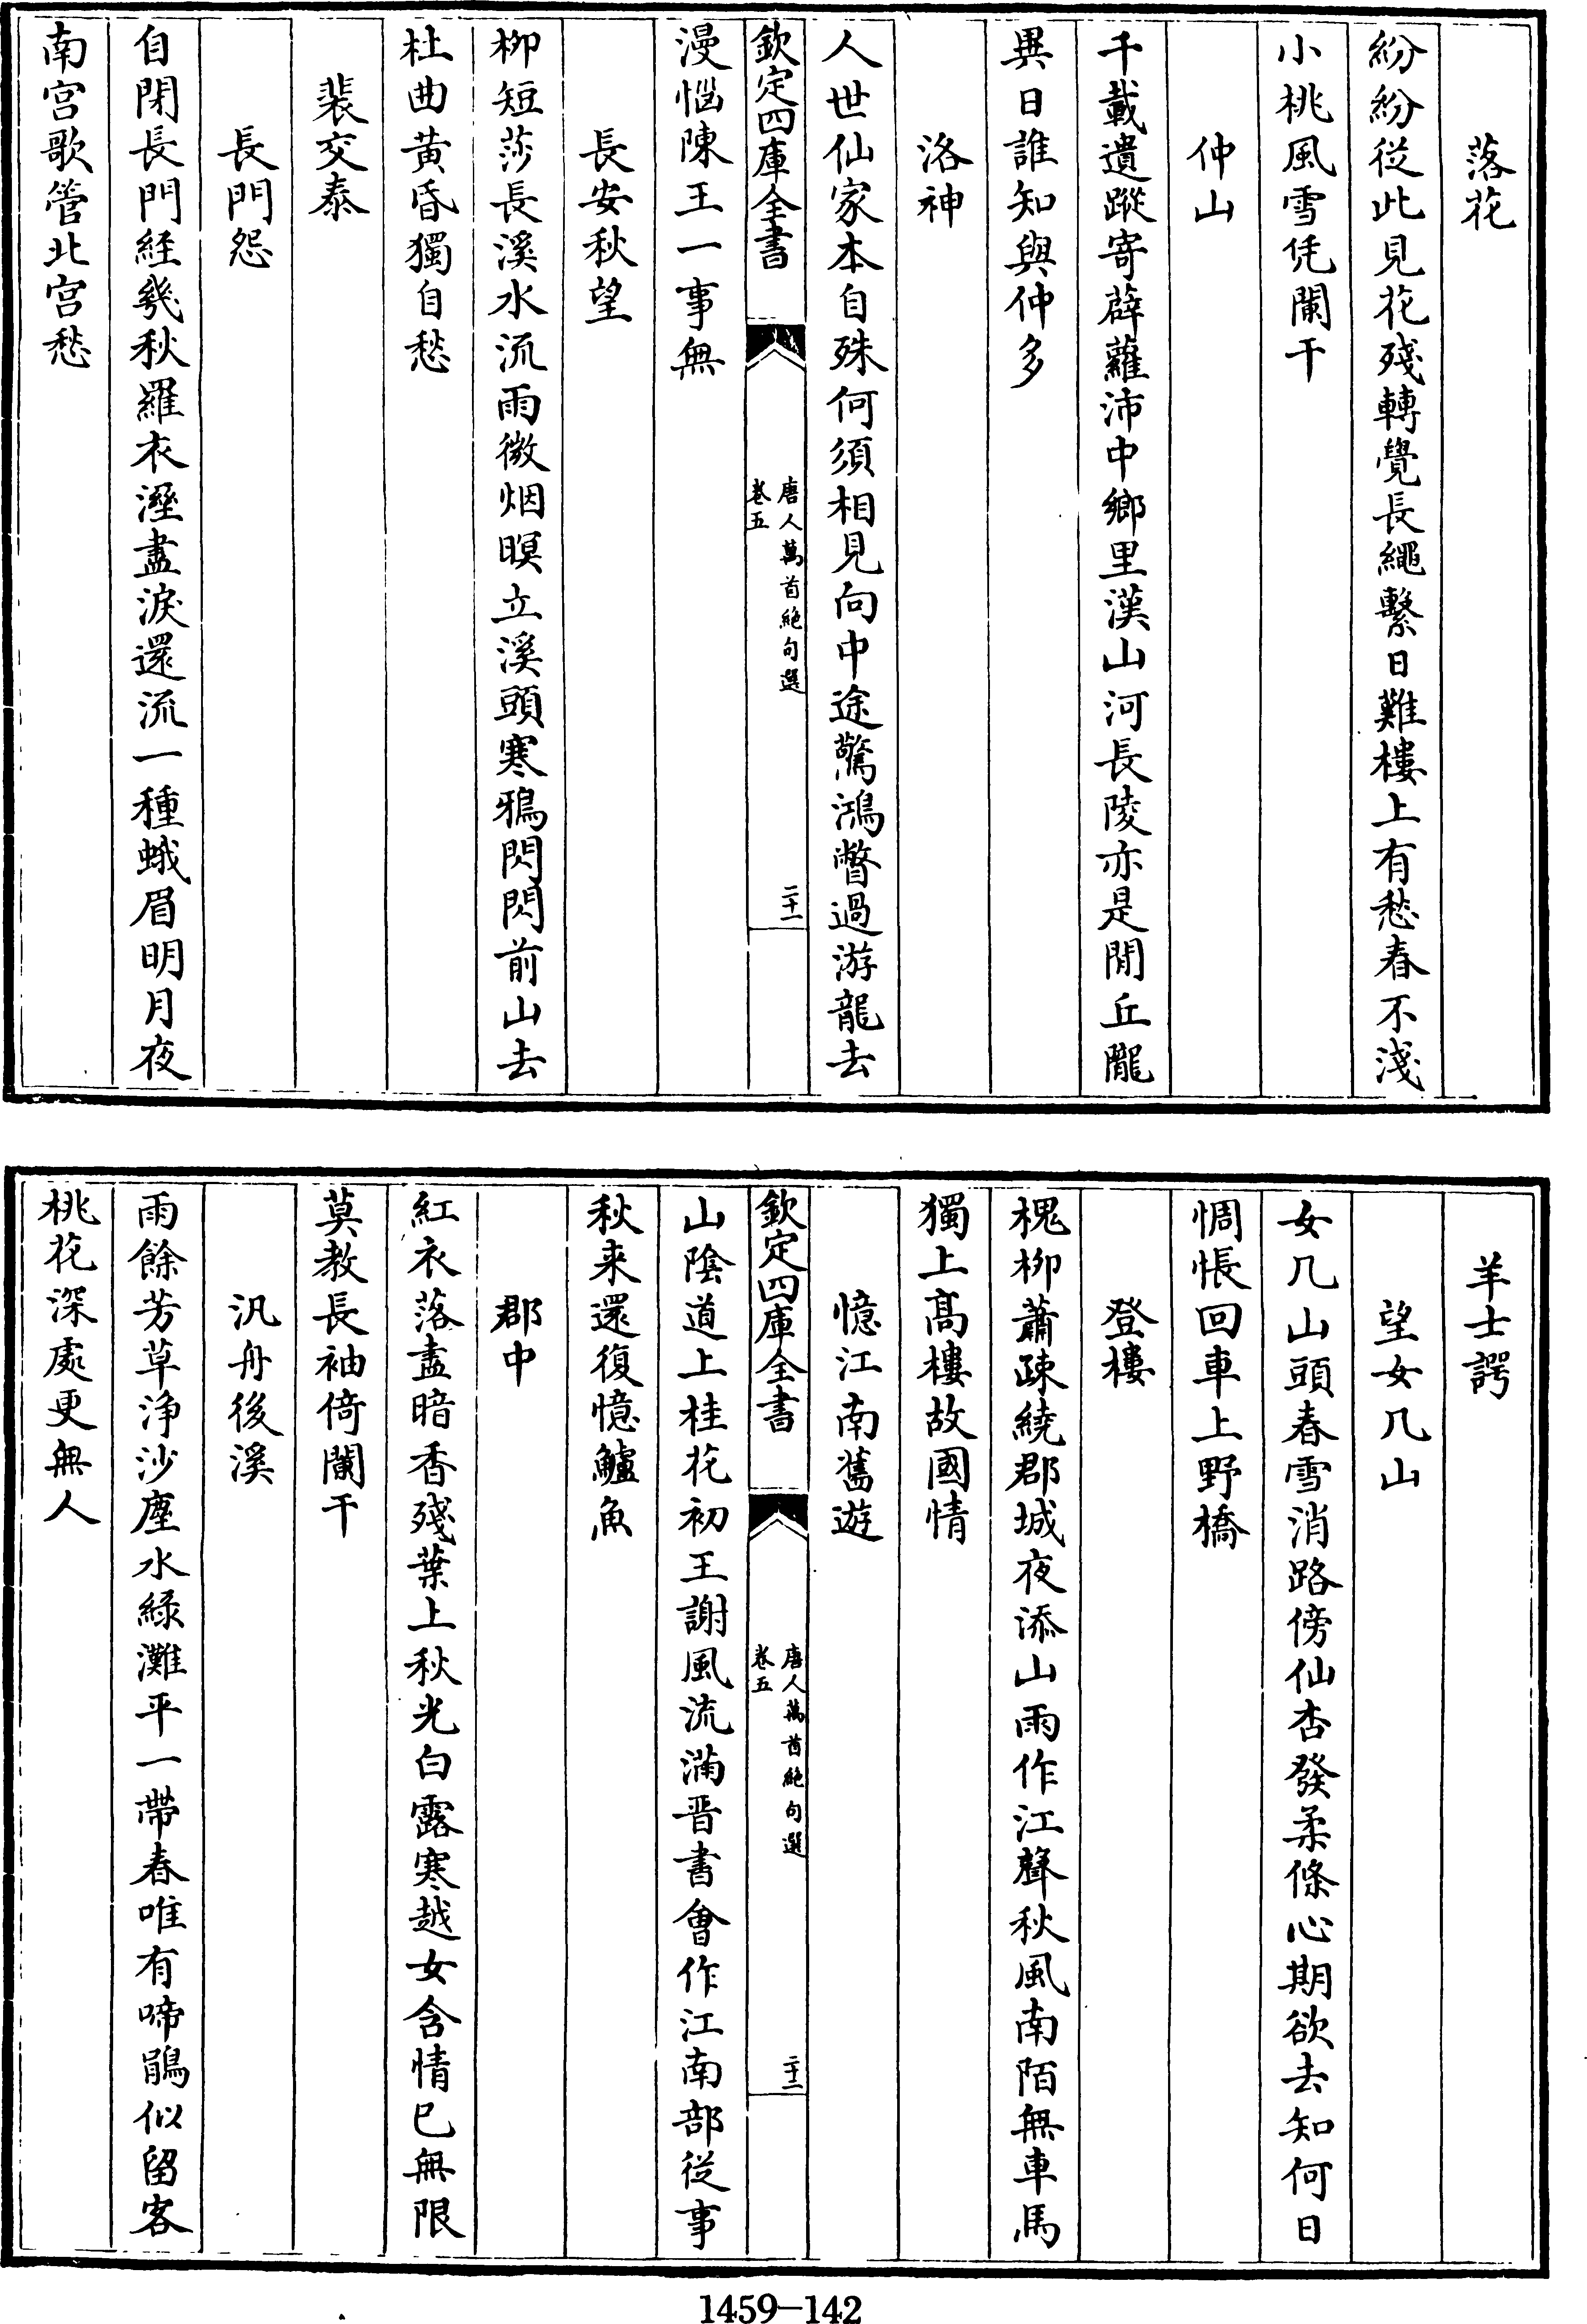 落花
紛紛從此見花殘轉覺長繩繫日難樓上有愁春不淺
小桃風雪凭闌干
仲山
千載遺蹤寄薜蘿沛中鄉里漢山河長陵亦是閒丘隴
異日誰知與仲多
洛神
人世仙家本自殊何須相見向中途驚鴻瞥過游龍去
欽定四庫全書
唐人萬首絶句選
卷五
二十一
漫惱陳王一事無
長安秋望
柳短莎長溪水流雨微烟暝立溪頭寒鴉閃閃前山去
杜曲黃昏獨自愁
裴交泰
長門怨
自閉長門經幾秋羅衣溼盡淚還流一種蛾眉明月夜
南宫歌管北宫愁
羊士諤
望女几山
女几山頭春雪消路傍仙杏發柔條心期欲去知何日
惆悵回車上野橋
登樓
槐柳蕭疎繞郡城夜添山雨作江聲秋風南陌無車馬
獨上髙樓故國情
憶江南舊遊
欽定四庫全書
唐人萬首絶句選
卷五
二十二
山陰道上桂花初王謝風流滿晋書曾作江南部從事
秋来還復憶鱸魚
郡中
紅衣落盡暗香殘葉上秋光白露寒越女含情已無限
莫教長袖倚闌干
汎舟後溪
雨餘芳草浄沙塵水緑灘平一帶春唯有啼鵑似留客
桃花深處更無人
1459-142